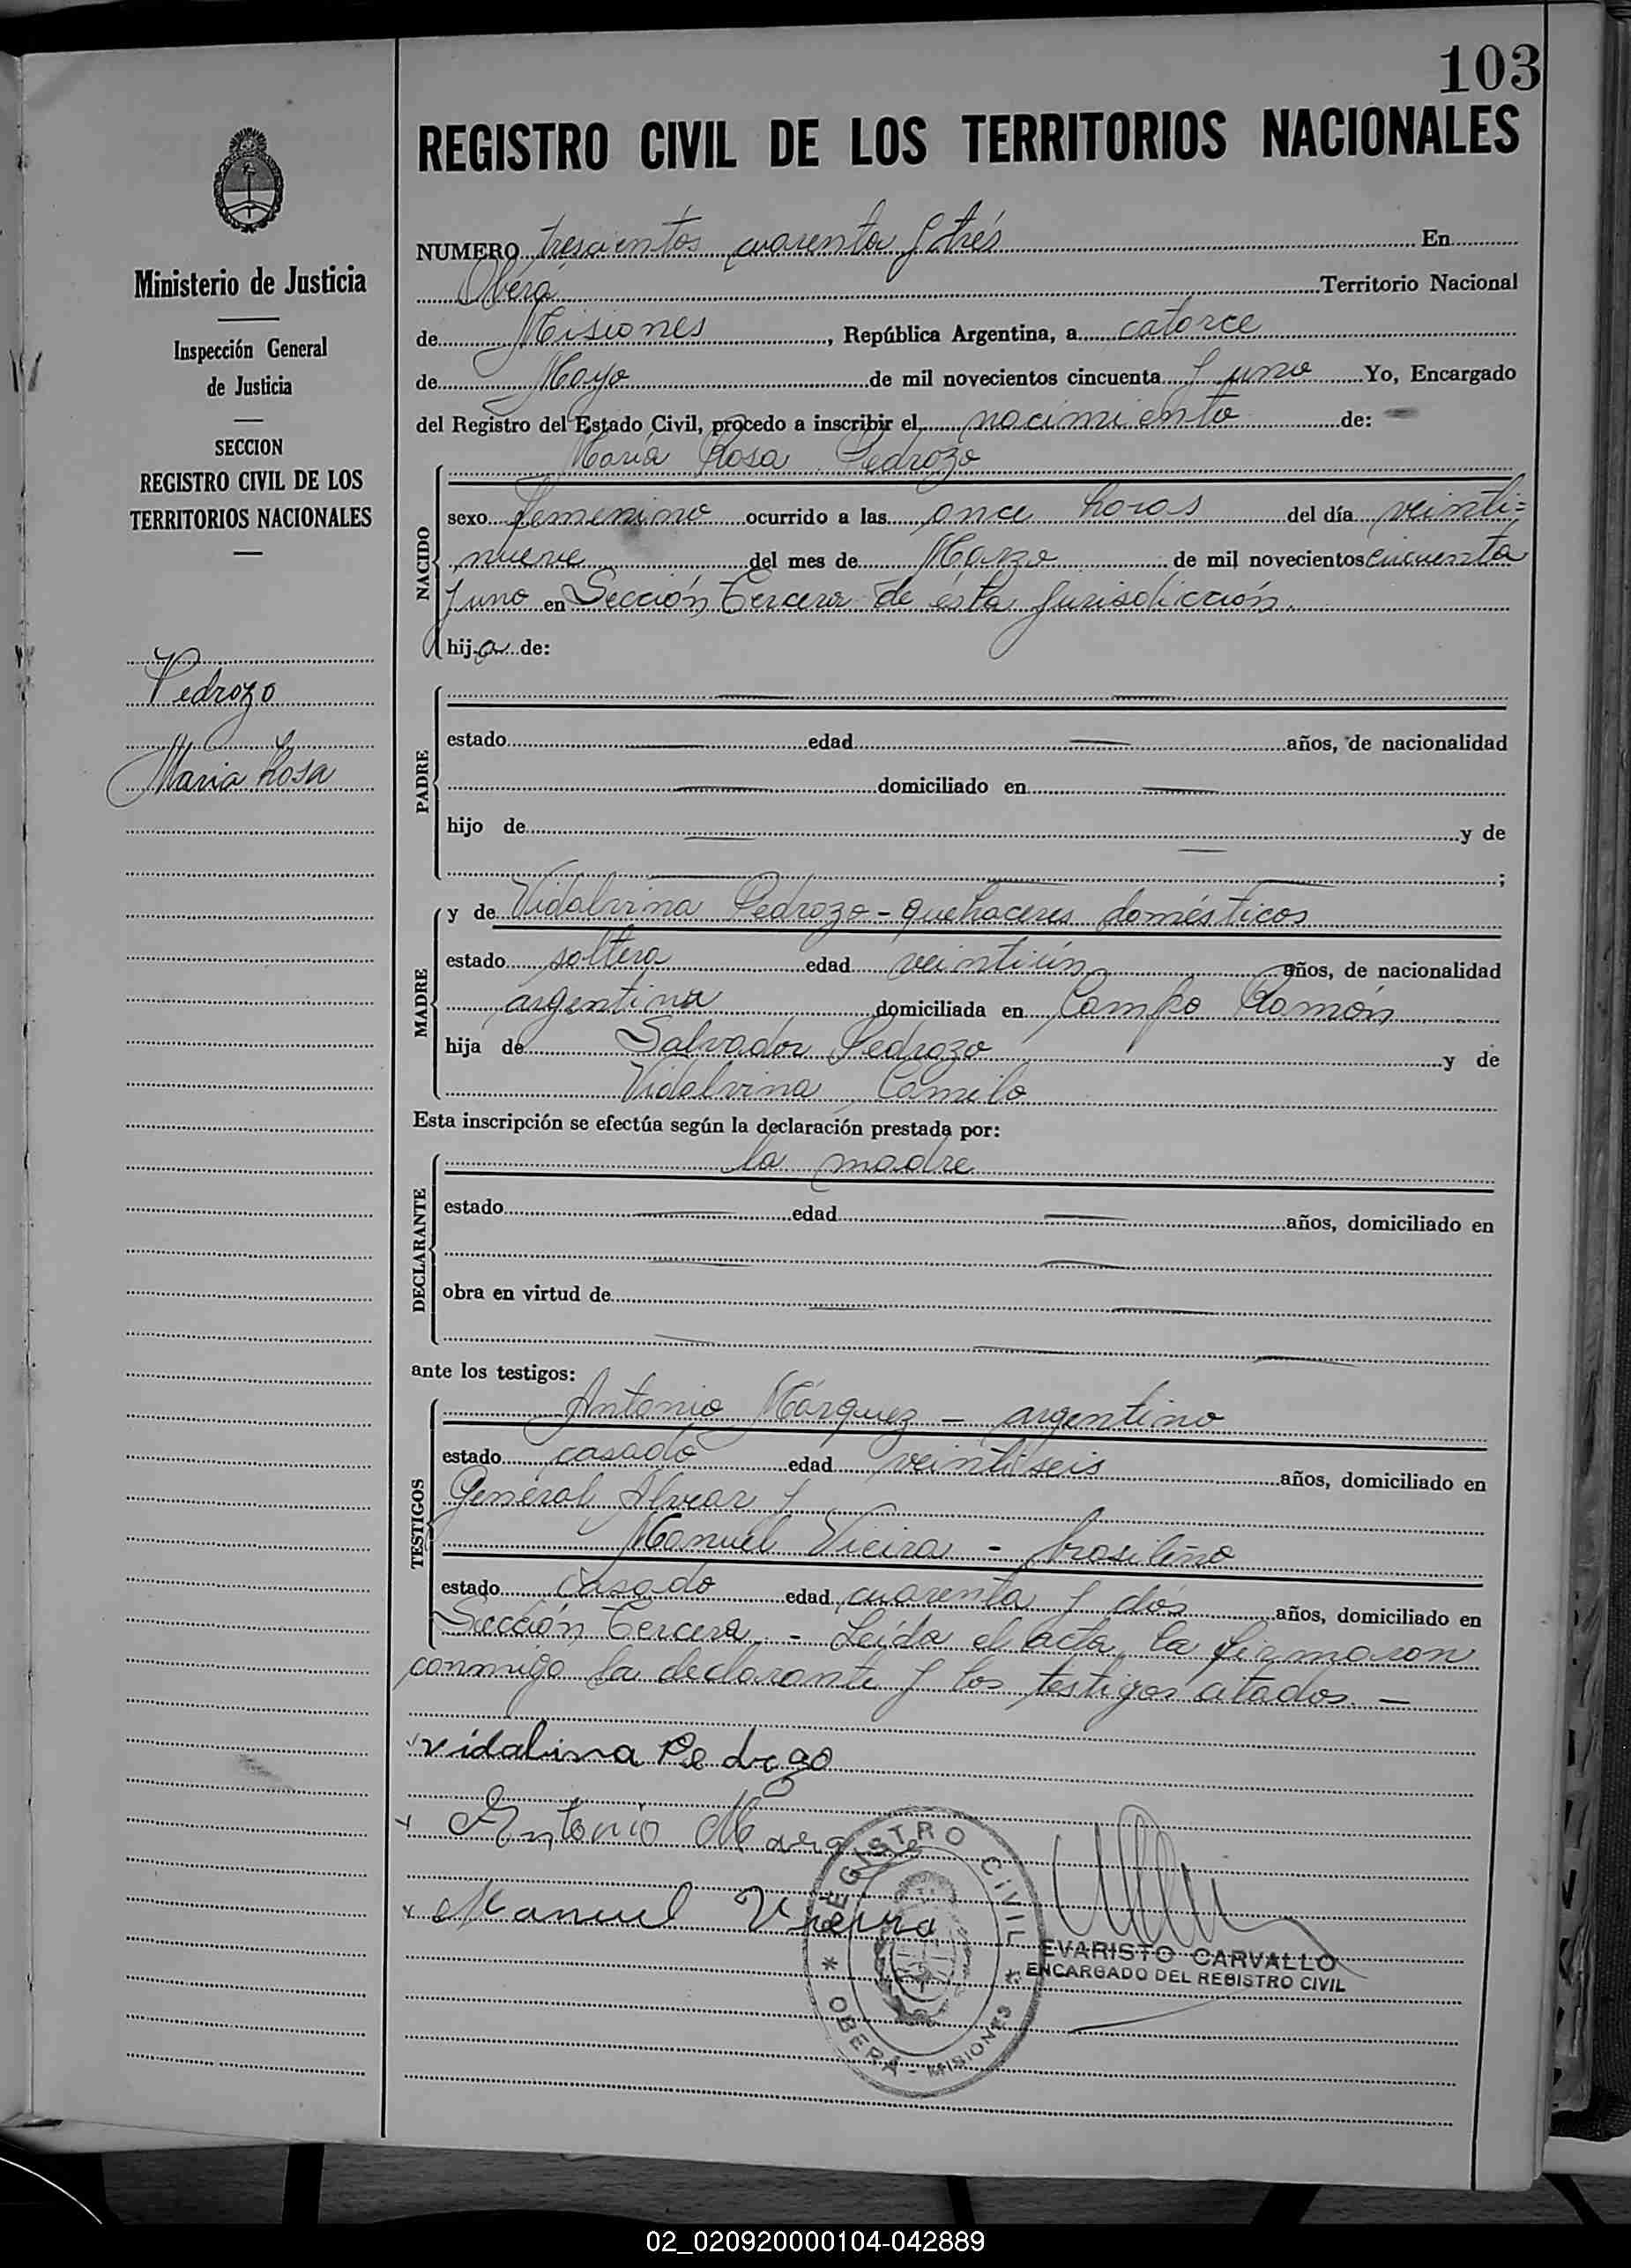 103
REGISTRO CIVIL DE LOS TERRITORIOS NACIONALES
Ministerio de Justicia
Inspección General
de Justicia
SECCION
REGISTRO CIVIL DE LOS
TERRITORIOS NACIONALES
Pedrozo
Maria Rosa
NUMERO trescientos cuarenta y trés En
Oberá Territorio Nacional
de Misiones, República Argentina, a catorce
de Mayo de mil novecientos cincuenta y uno Yo, Encargado
del Registro del Estado Civil, procedo a inscribir el nacimiento de:
María Rosa Pedrozo
NACIDO
sexo femenino ocurrido a las once horas del día veinti=
nueve del mes de Marzo de mil novecientos cincuenta
y uno en Sección Tercera de ésta jurisdicción.
hija de:
PADRE
estado — edad — años, de nacionalidad
— domiciliado en —
hijo de — y de
— ;
MADRE
y de Vidalvina Pedrozo - quehaceres domésticos
estado soltera edad veintiún años, de nacionalidad
argentina domiciliada en Campo Ramón
hija de Salvador Pedrozo y de
Vidalvina Camilo
Esta inscripción se efectúa según la declaración prestada por:
DECLARANTE
la madre
estado — edad — años, domiciliado en
— —
obra en virtud de — —
— — —
ante los testigos:
TESTIGOS
Antonio Márquez - argentino
estado casado edad veintiseis años, domiciliado en
General Alvear y
Manuel Vieira - brasileño
estado casado edad cuarenta y dós años, domiciliado en
Sección Tercera. - Leída el acta, la firmaron
conmigo la declarante y los testigos citados. —
vidalina Pedrozo
Antonio Marquez
Manuel Vieira
REGISTRO CIVIL
* OBERÁ - MISIONES *
EVARISTO CARVALLO
ENCARGADO DEL REGISTRO CIVIL
02_020920000104-042889